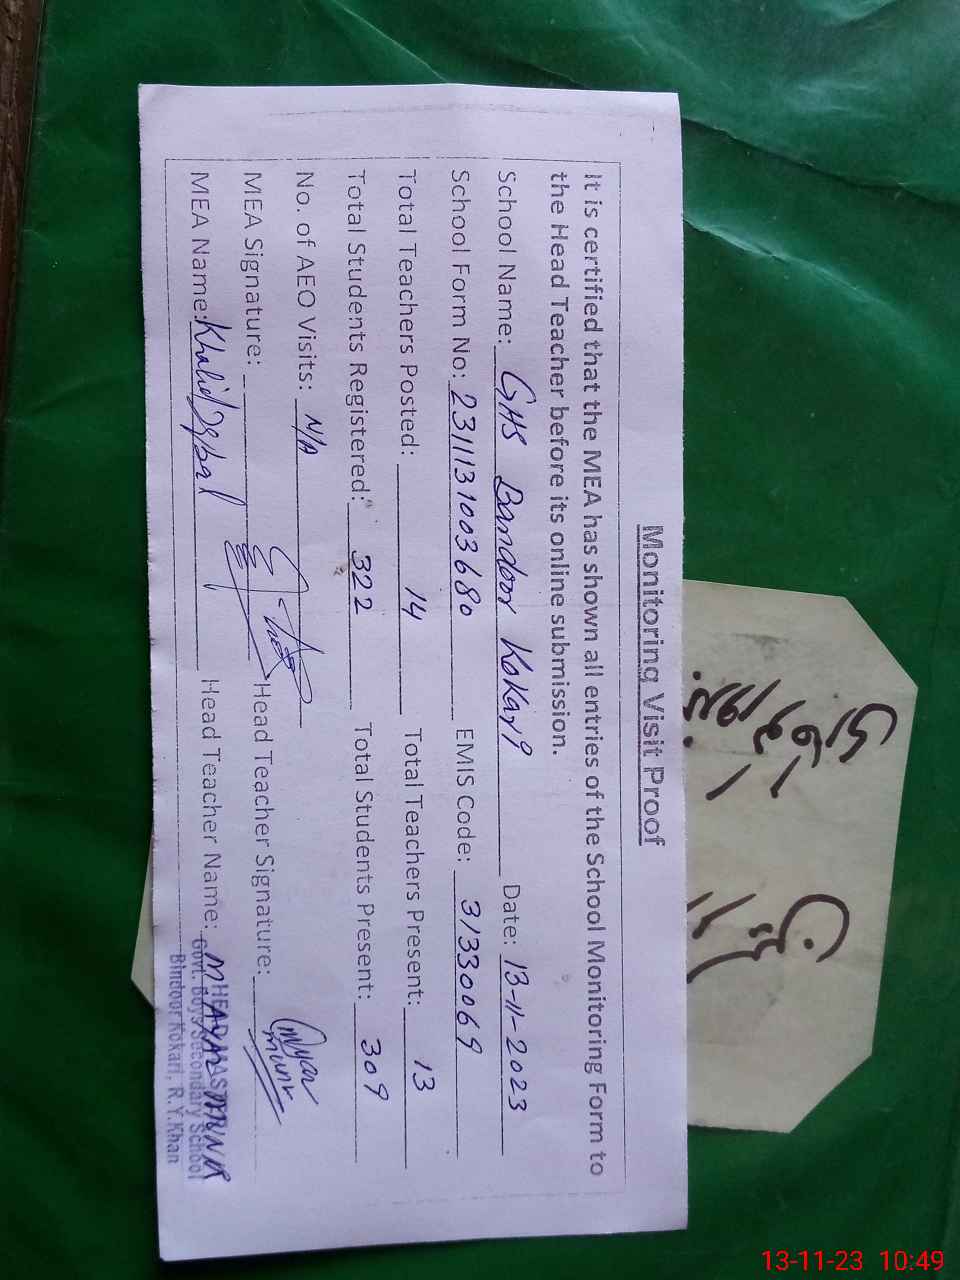 Monitoring Visit Proof
It is certified that the MEA has shown all entries of the School Monitoring Form to
the Head Teacher before its online submission.
School Name: GHS Bandoor Kokari Date: 13-11-2023
School Form No: 2311131003680 EMIS Code: 31330069
Total Teachers Posted: 14 Total Teachers Present: 13
Total Students Registered: 322 Total Students Present: 309
No. of AEO Visits: N/A
MEA Signature: Head Teacher Signature:
MEA Name: Khalid Iqbal Head Teacher Name:
HEADMASTER
Govt. Boys Secondary School
Bindoor Kokari, R.Y.Khan
13-11-23 10:49